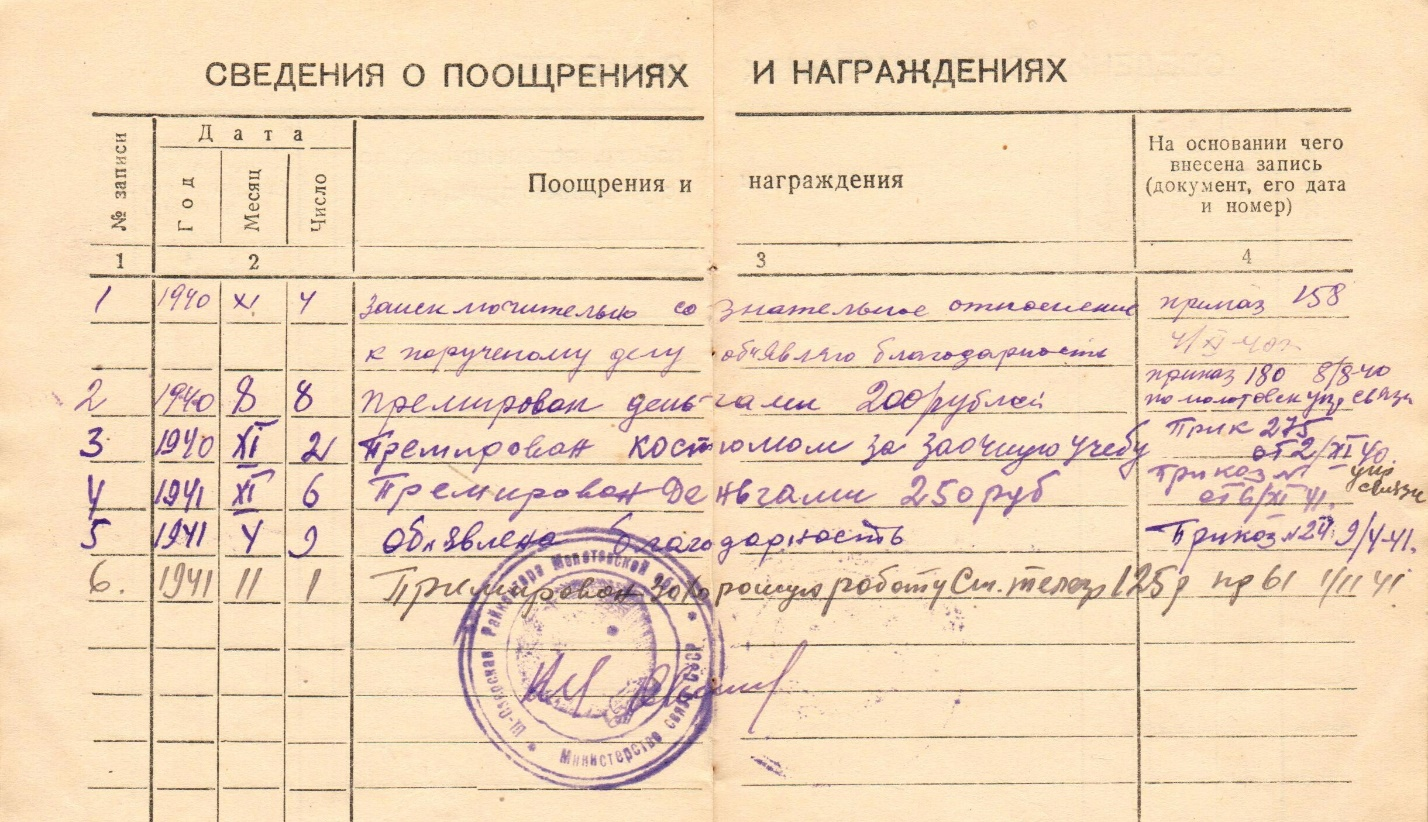 СВЕДЕНИЯ О ПООЩРЕНИЯХ И НАГРАЖДЕНИЯХ
№ записи
Дата
Год
Месяц
Число
Поощрения и награждения
На основании чего
внесена запись
(документ, его дата
и номер)
1 2 3 4
1 1940 XI 4 За исключительно сознательное отношение приказ 158
к порученому делу объявляю благодарность 4/XI-40г
приказ 180 8/8-40
2 1940 8 8 премирован деньгами 200 рублей по молотовск упр связи
3 1940 XI 2 Премирован костюмом за заочную учебу Прик 275
от 2/XI 40.
4 1941 XI 6 Премирован Деньгами 250 руб Приказ №
от 6/XI 41. упр связи
5 1941 4 9 Объявлена благодарность Приказ №24. 9/4-41.
6. 1941 11 1 Примирован за хорошую работу Ст. телегр 125р пр 61 1/11 41
Райконтора Молотовской обл
Министерство связи СССР